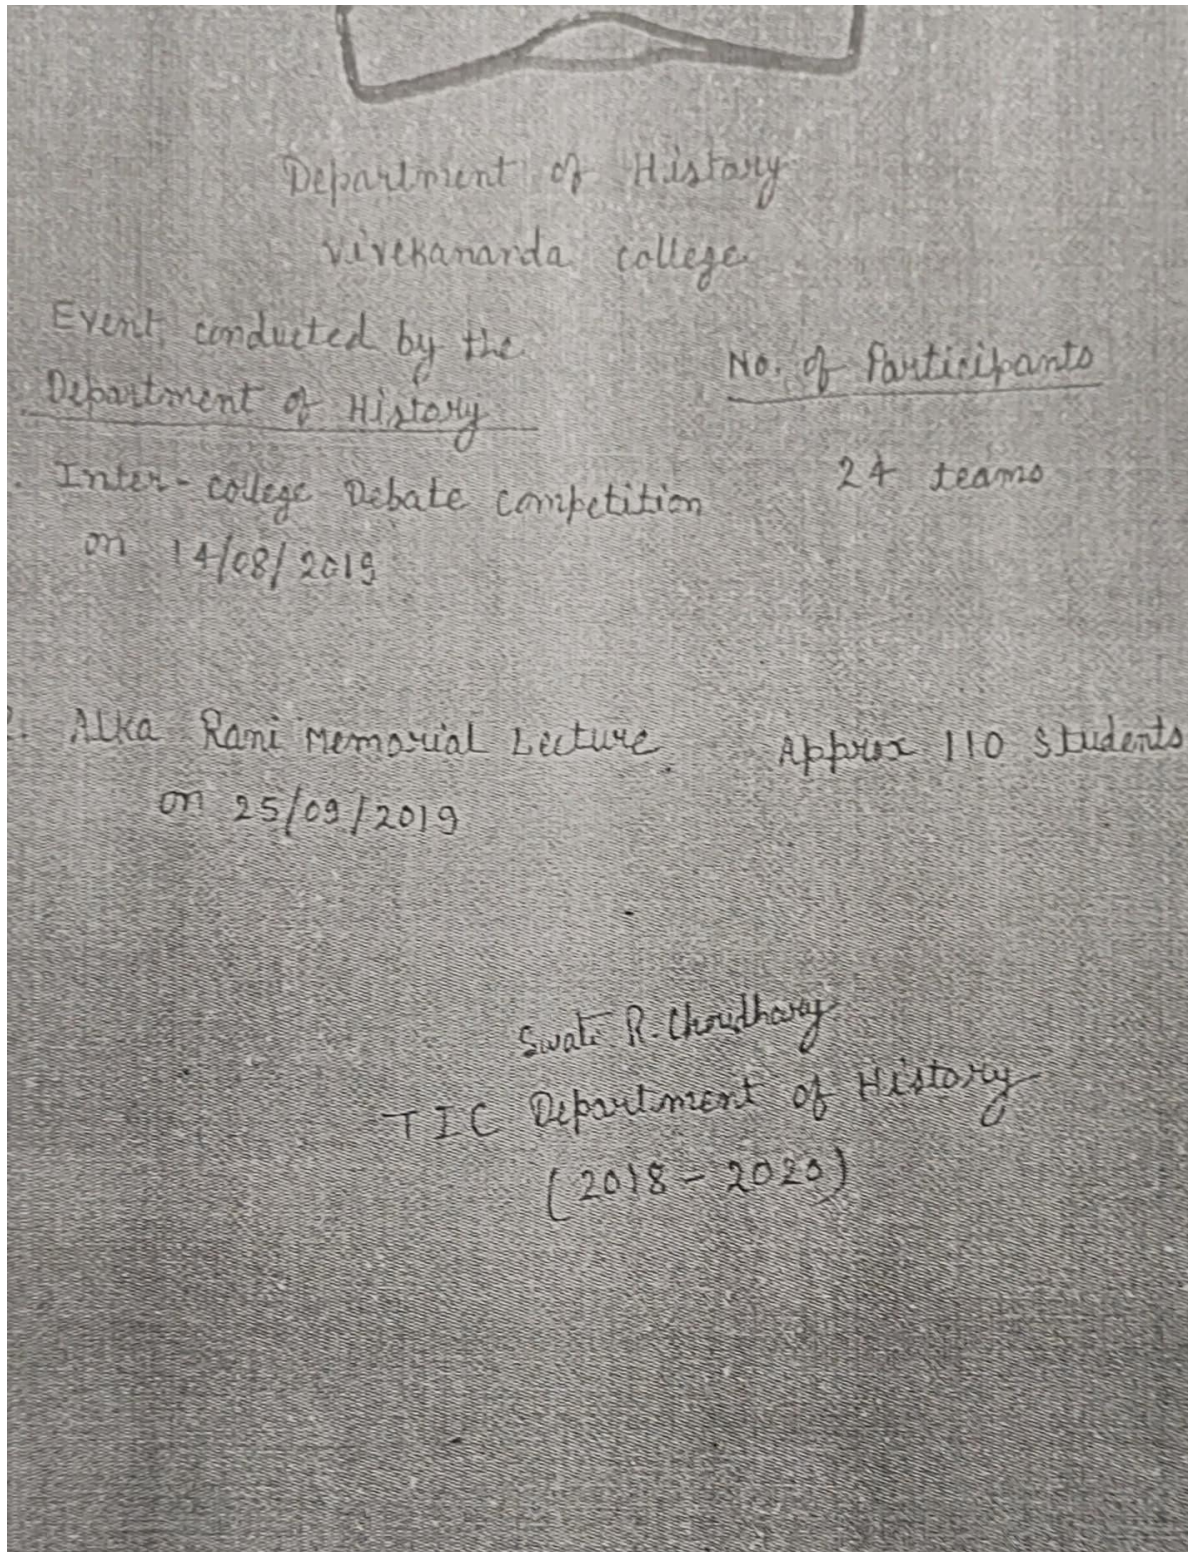 Department of History
Vivekananda College
Event conducted by the
Department of History
No. of Participants
Inter-college Debate competition
on 14/08/2019
24 teams
2. Alka Rani Memorial Lecture
on 25/09/2019
Approx 110 Students
Swati R. Choudhary
TIC Department of History
(2018-2020)